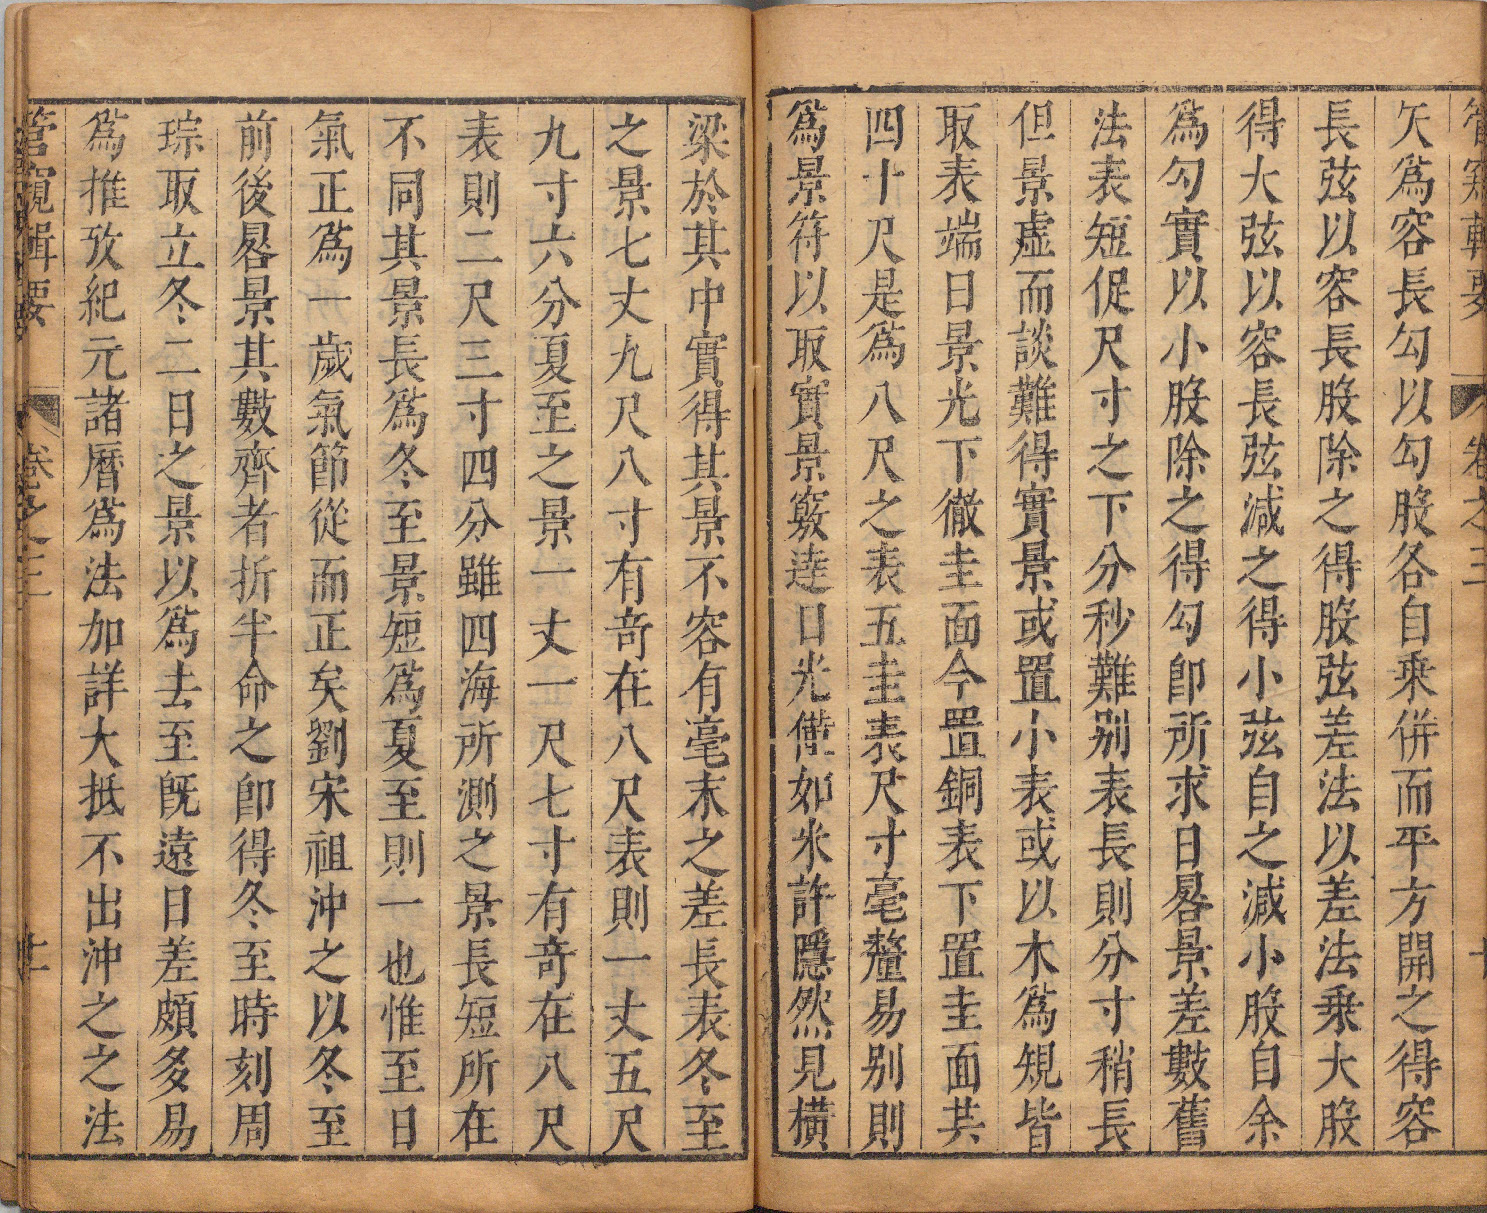 管窺輯要 卷之三 十
矢爲容長勾以勾股各自乘併而平方開之得容
長弦以容長股除之得股弦差法以差法乘大股
得大弦以容長弦減之得小弦自之減小股自余
爲勾實以小股除之得勾卽所求日晷景差數舊
法表短促尺寸之下分秒難别表長則分寸稍長
但景虚而談難得實景或置小表或以木爲規皆
取表端日景光下徹圭面今置銅表下置圭面共
四十尺是爲八尺之表五圭表尺寸毫釐易别則
爲景符以取實景竅達日光僅如米許隱然見橫
梁於其中實得其景不容有毫末之差長表冬至
之景七丈九尺八寸有竒在八尺表則一丈五尺
九寸六分夏至之景一丈一尺七寸有竒在八尺
表則二尺三寸四分雖四海所測之景長短所在
不同其景長爲冬至景短爲夏至則一也惟至日
氣正爲一歲氣節從而正矣劉宋祖沖之以冬至
前後晷景其數齊者折半命之卽得冬至時刻周
琮取立冬二日之景以爲去至旣遠日差頗多易
爲推攷紀元諸曆爲法加詳大抵不出沖之之法
管窺輯要 卷之三 十一